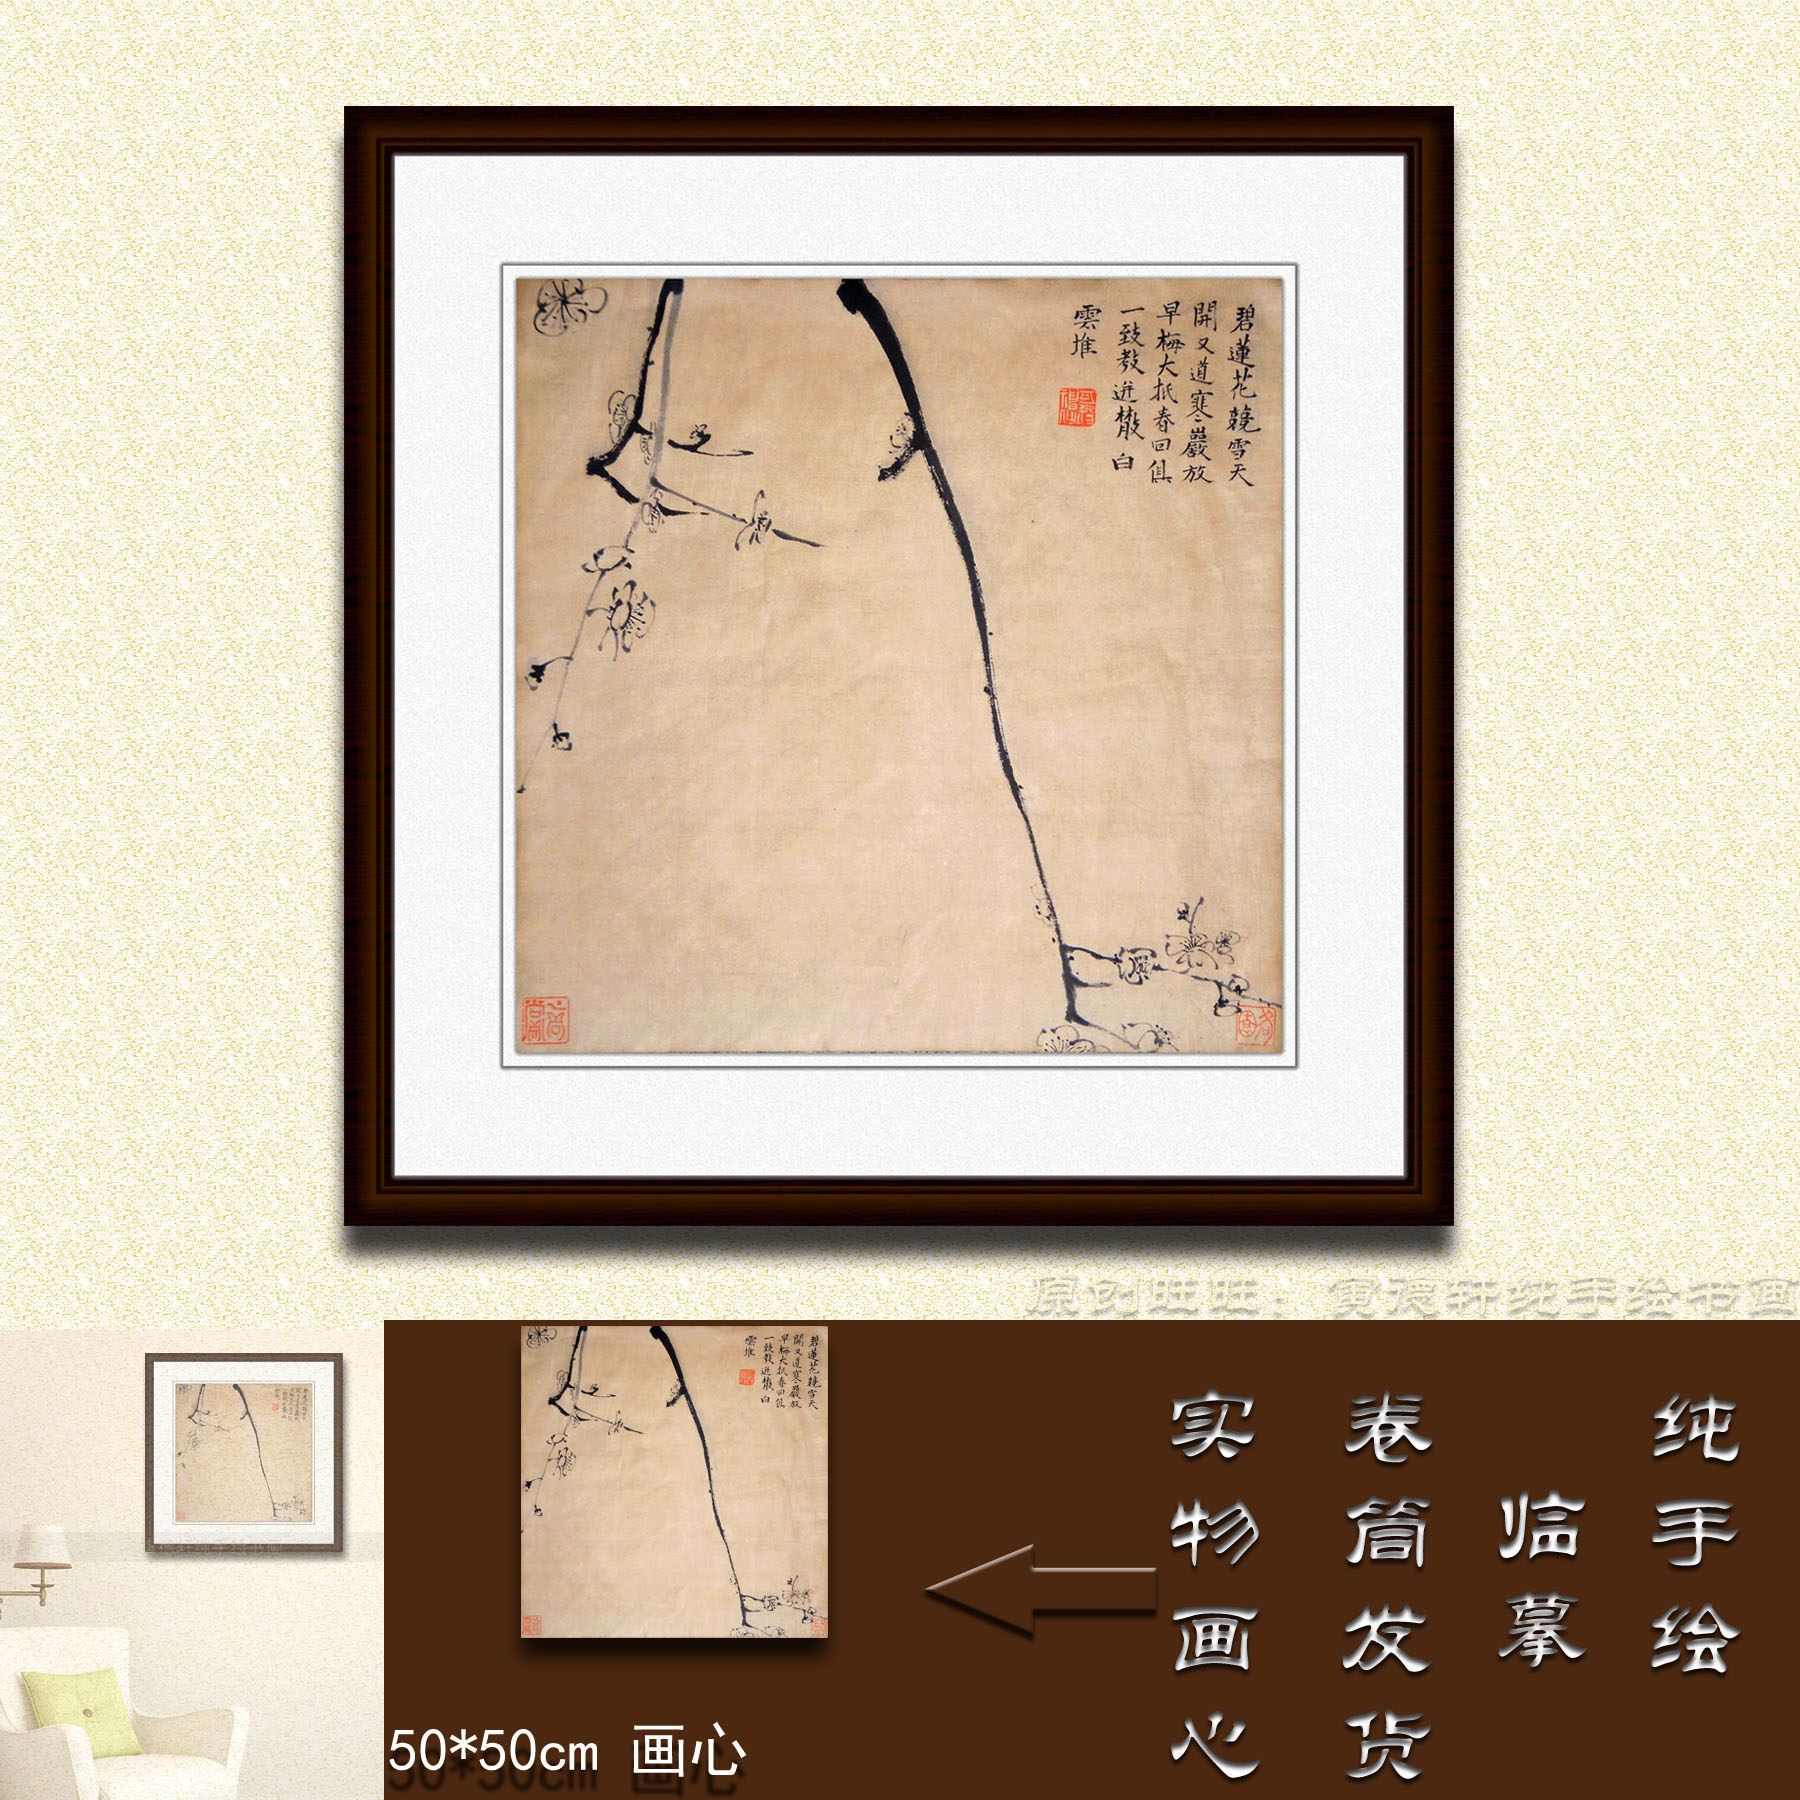 碧蓮花競雪天
開又道寒巖放
早梅大抵春回俱
一致教遊散白
雲堆
原创旺旺：寅德轩纯手绘书画
纯手绘
临摹
卷筒发货
实物画心
50*50cm 画心